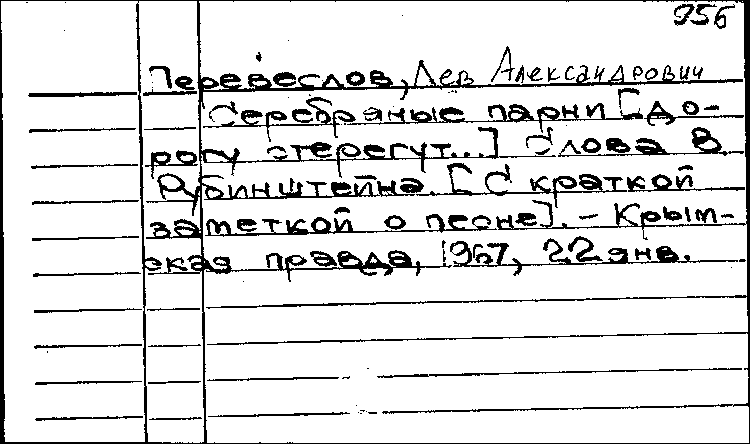 956
Перевеслов, Лев Александрович
Серебряные парни [до-
рогу стерегут...] Слова В.
Рубинштейна. [С краткой
заметкой о песне]. - Крым-
ская правда, 1967, 22 янв.